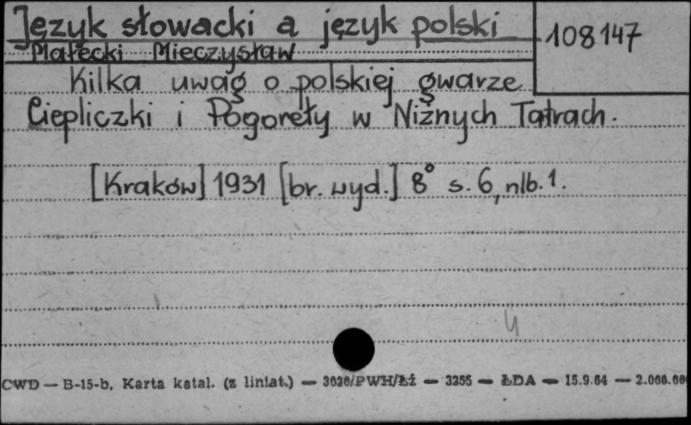 Język słowacki a język polski
108147
Małecki Mieczysław
Kilka uwag o polskiej gwarze
Ciepliczki i Pogoreły w Niżnych Tatrach.
[Kraków] 1931 [br. wyd.] 8° s. 6, nlb. 1.
4
CWD — B-15-b, Karta katal. (z liniat.) — 3020/PWH/Łź — 3255 — ŁDA — 15.9.64 — 2.000.00